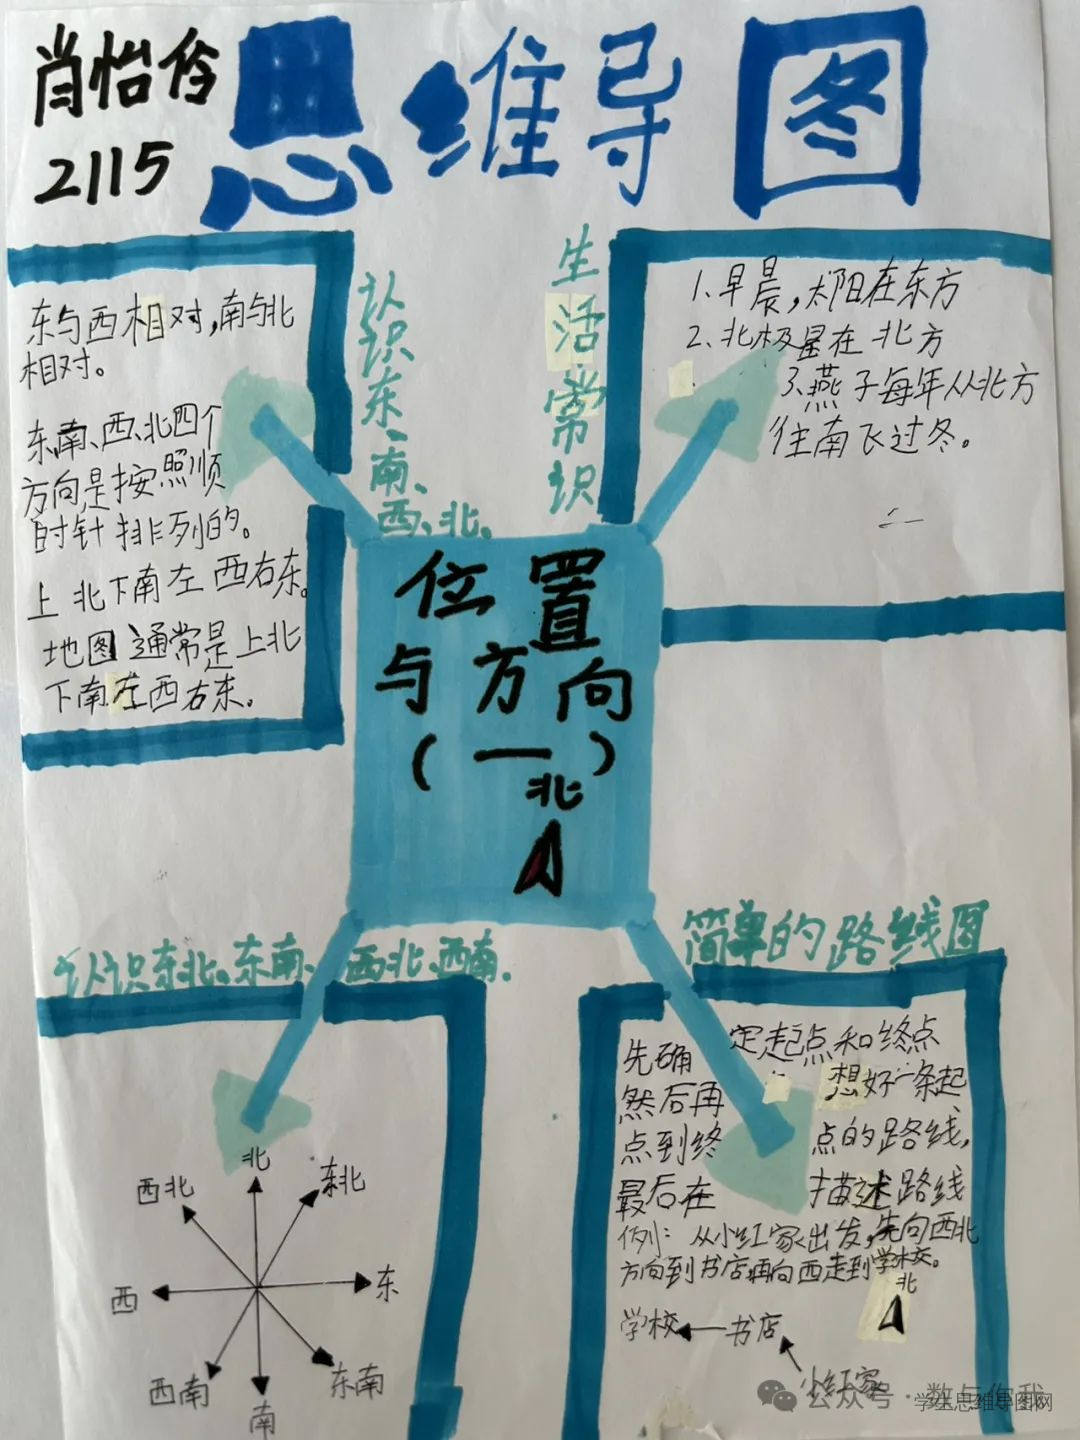 肖怡伶
2115
思维导图
认识东、南、西、北。
东与西相对,南与北
相对。
东、南、西、北四个
方向是按照顺
时针排列的。
上北下南左西右东。
地图通常是上北
下南左西右东。
生活常识
1、早晨,太阳在东方
2、北极星在北方
3、燕子每年从北方
往南飞过冬。
位置
与方向
(一)
北
认识东北、东南、西北、西南.
北
西北
东北
西
东
西南
东南
南
简单的路线图
先确定起点和终点
然后再想好一条起
点到终点的路线,
最后在描述路线
例:从小红家出发,先向西北
方向到书店再向西走到学校。
北
学校
书店
小红家
公众号·数与你我
学生思维导图网